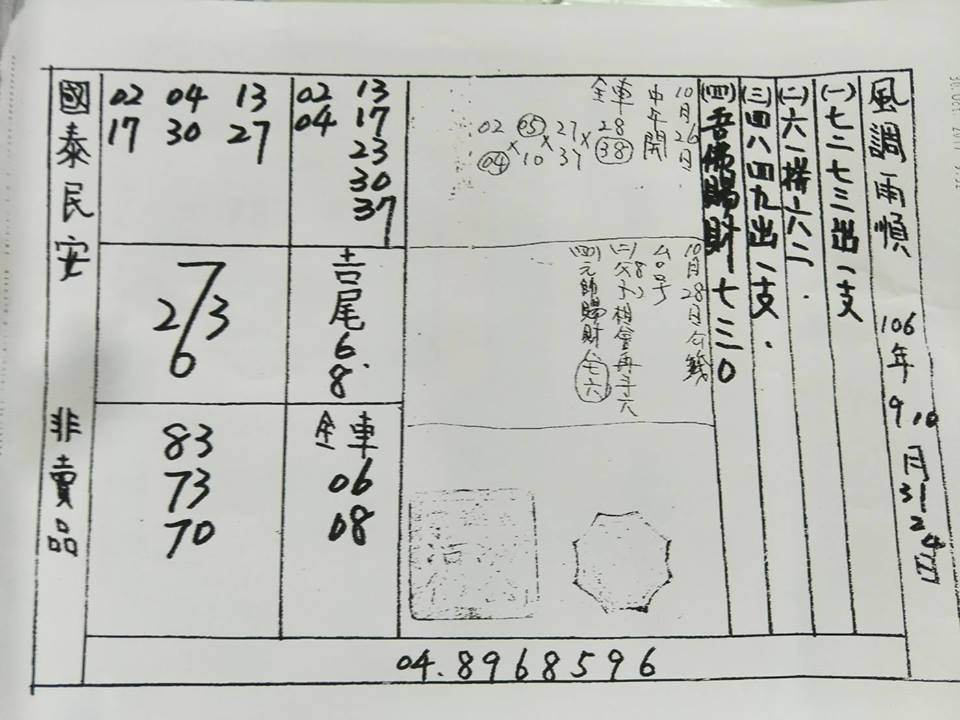 風調雨順 106年
(一)七二七三出一支
(二)六一拼六二.
(三)四八四九出一支.
(四)吾佛賜財七三0
10月26日
中午開
全車
28
27 38
05 37
02 10
04
10月28日
台号
父子相會再手六
(四)元帥賜財
02 13
04 17
23
30
37
吉尾
6.
8
全車
06
08
02 04 13
17 30 27
7
2 3
6
83
73
70
國泰民安
非賣品
04.8968596